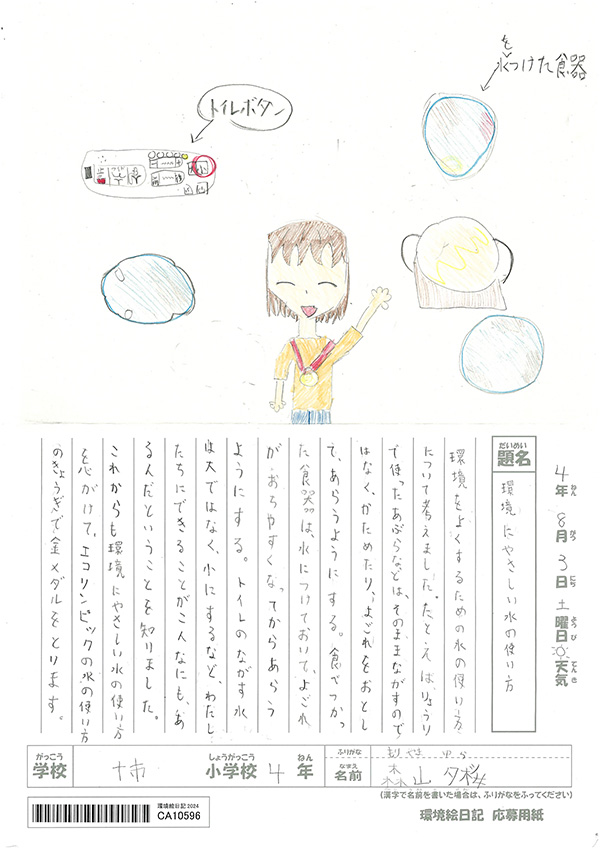 を
水つけた食器
トイレボタン
小
4年 8月 3日 土曜日 天気
ねん がつ にち ようび てんき
だいめい
題名
環境にやさしい水の使い方
環境をよくするための水の使い方
について考えました。たとえばりょうり
で使ったあぶらなどは、そのままながすので
はなく、かためたり、よごれをおとし
て、あらうようにする。食べつかっ
た食器は、水につけておいて、よごれ
がおちやすくなってからあらう
ようにする。トイレのながす水
は大ではなく、小にするなど、わたし
たちにできることがこんなにも、あ
るんだということを知りました。
これからも環境にやさしい水の使い方
を心がけて、エコリンピックの水の使い方
のきょうぎで金メダルをとります。
がっこう
学校
しょうがっこう ねん
小学校 4年
ふりがな
もりやま ゆら
なまえ
名前
森山 夕桜
(漢字で名前を書いた場合は、ふりがなをふってください)
環境絵日記2024
CA10596
環境絵日記 応募用紙